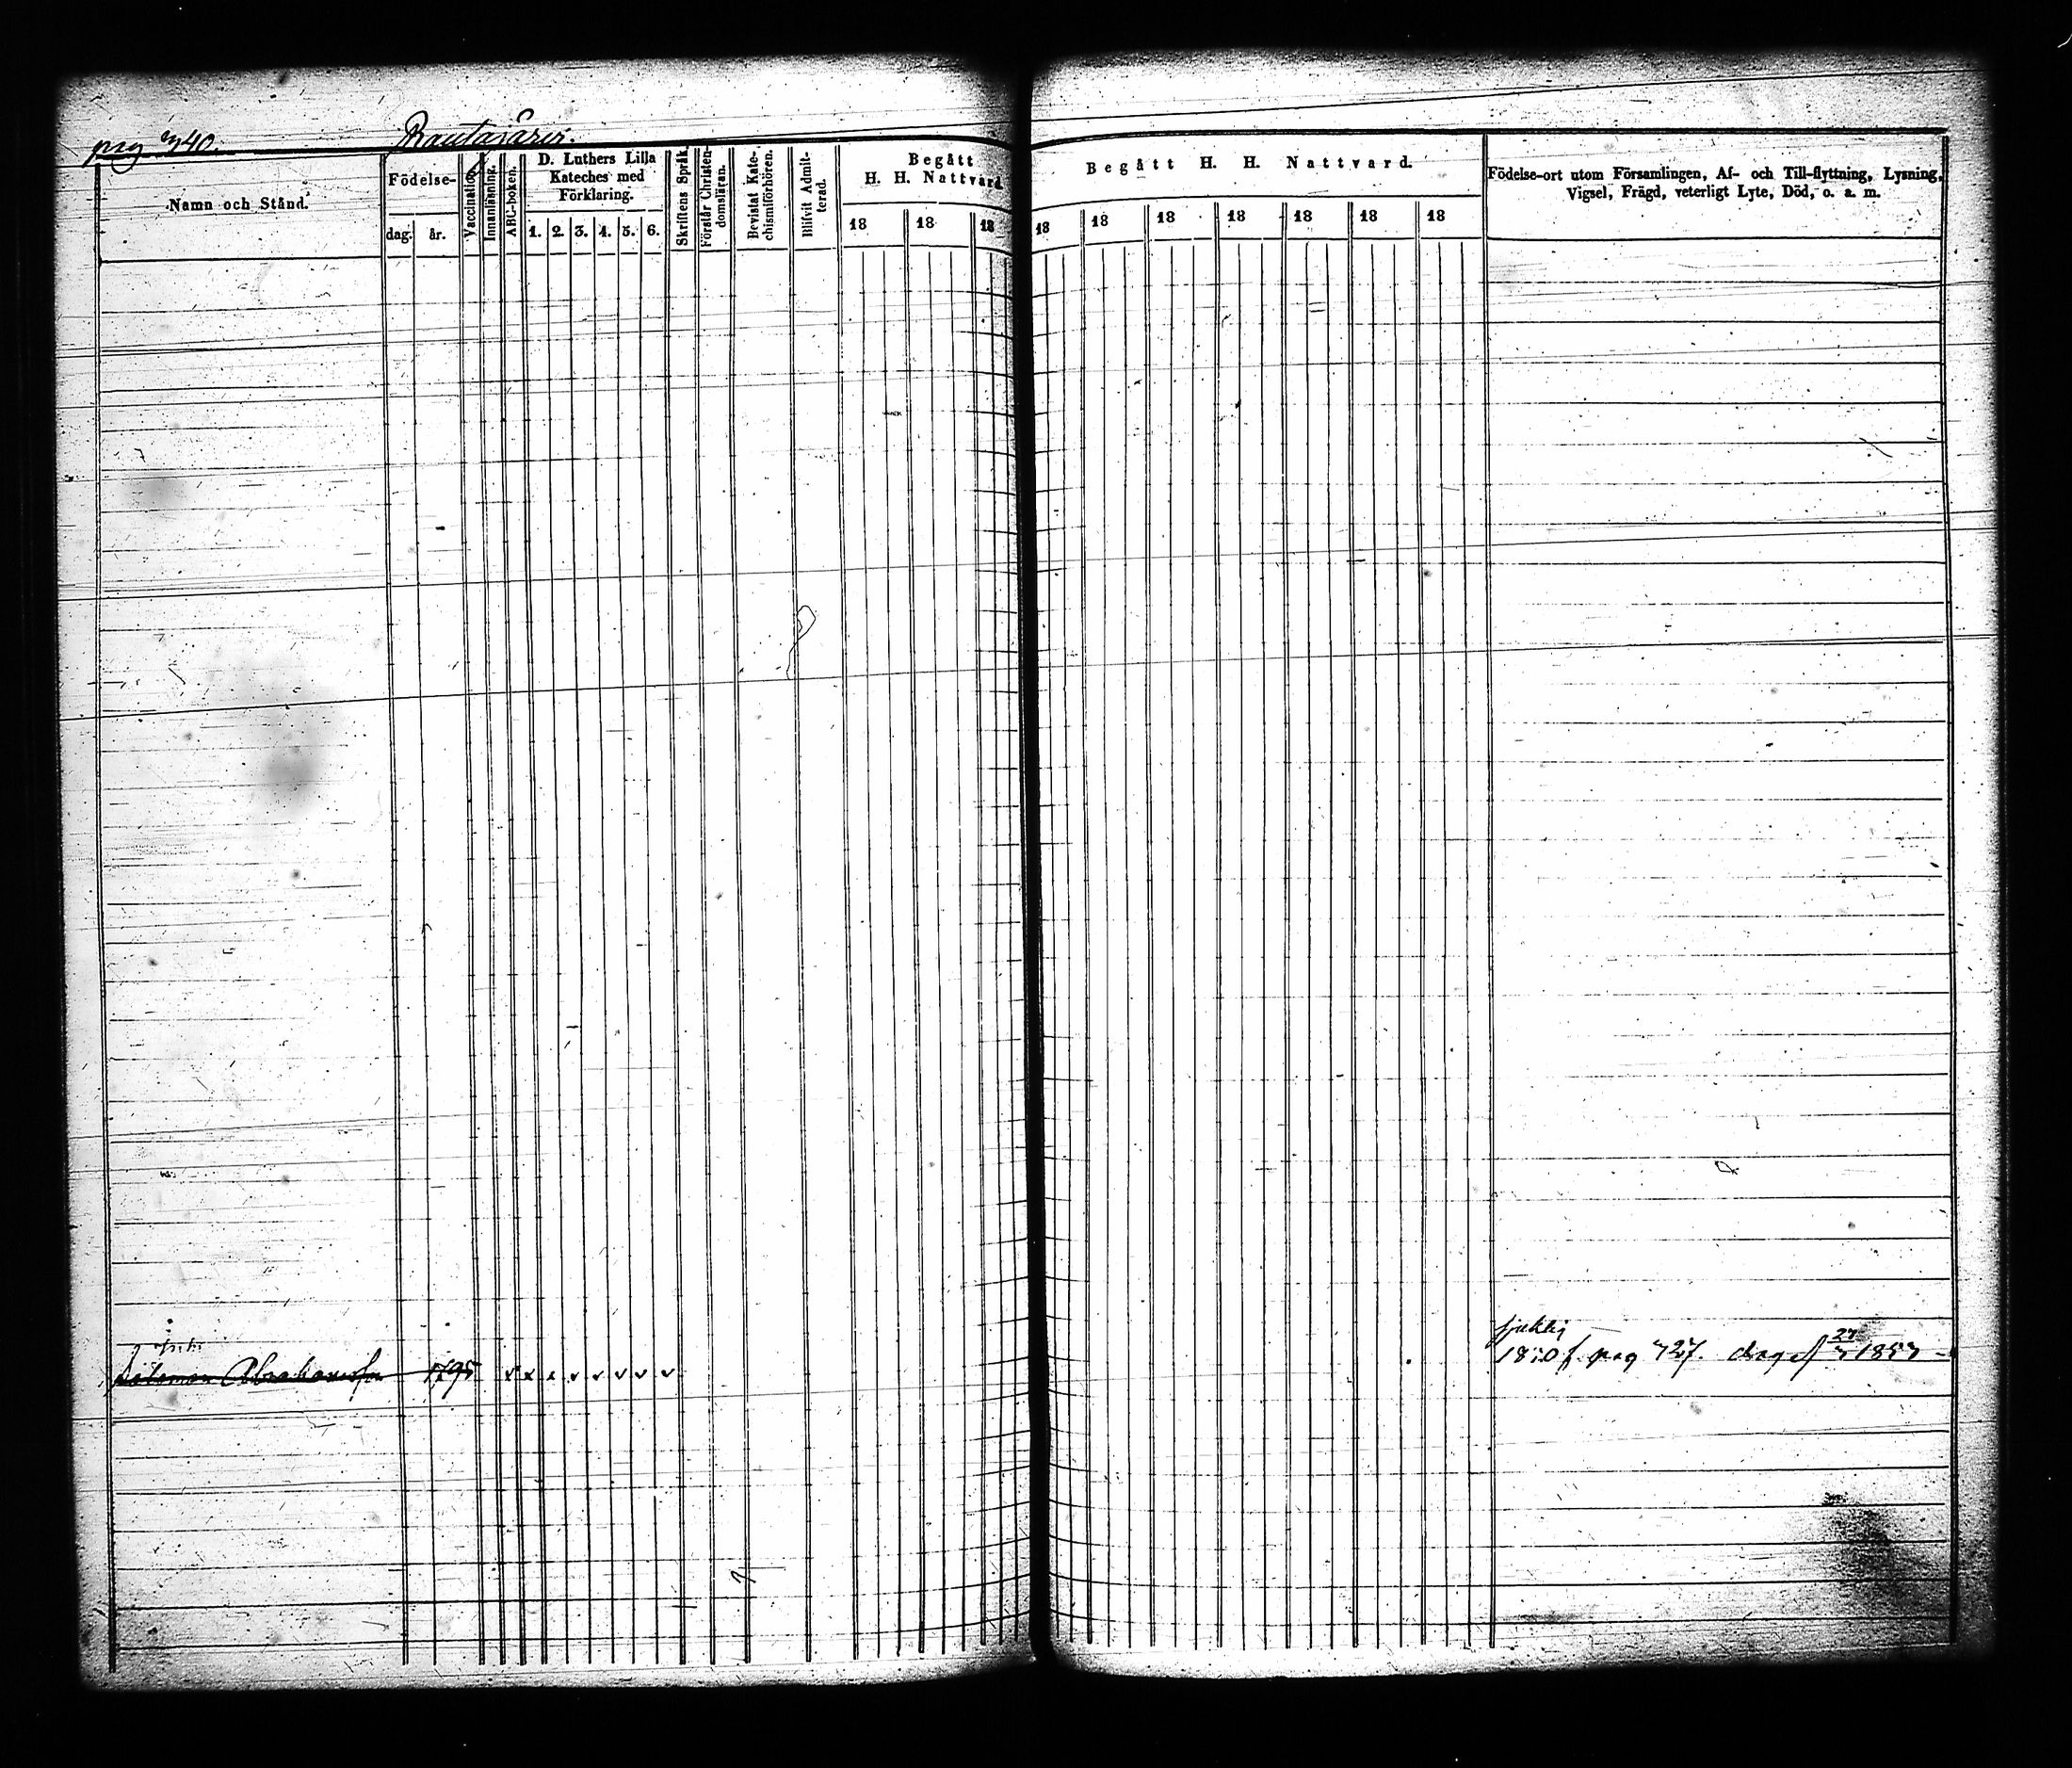 pag 740. Rautajärvi.
Namn och Stånd.
Födelse-
dag. år.
Vaccination.
Innanläsning.
ABC-boken.
D. Luthers Lilla
Kateches med
Förklaring.
1. 2. 3. 4. 5. 6.
Skriftens Språk.
Förstår Christen-
domsläran.
Bevistat Kate-
chismiförhören.
Blifvit Admit-
terad.
Begått
H. H. Nattvard.
18 18 18
Begått H. H. Nattvard.
18 18 18 18 18 18 18
Födelse-ort utom Församlingen, Af- och Till-flyttning, Lysning,
Vigsel, Frägd, veterligt Lyte, Död, o. a. m.
sjuklig
Salomon Abrahamsson 1795 v x x v v v v v 1850 f. pag 727. 1857